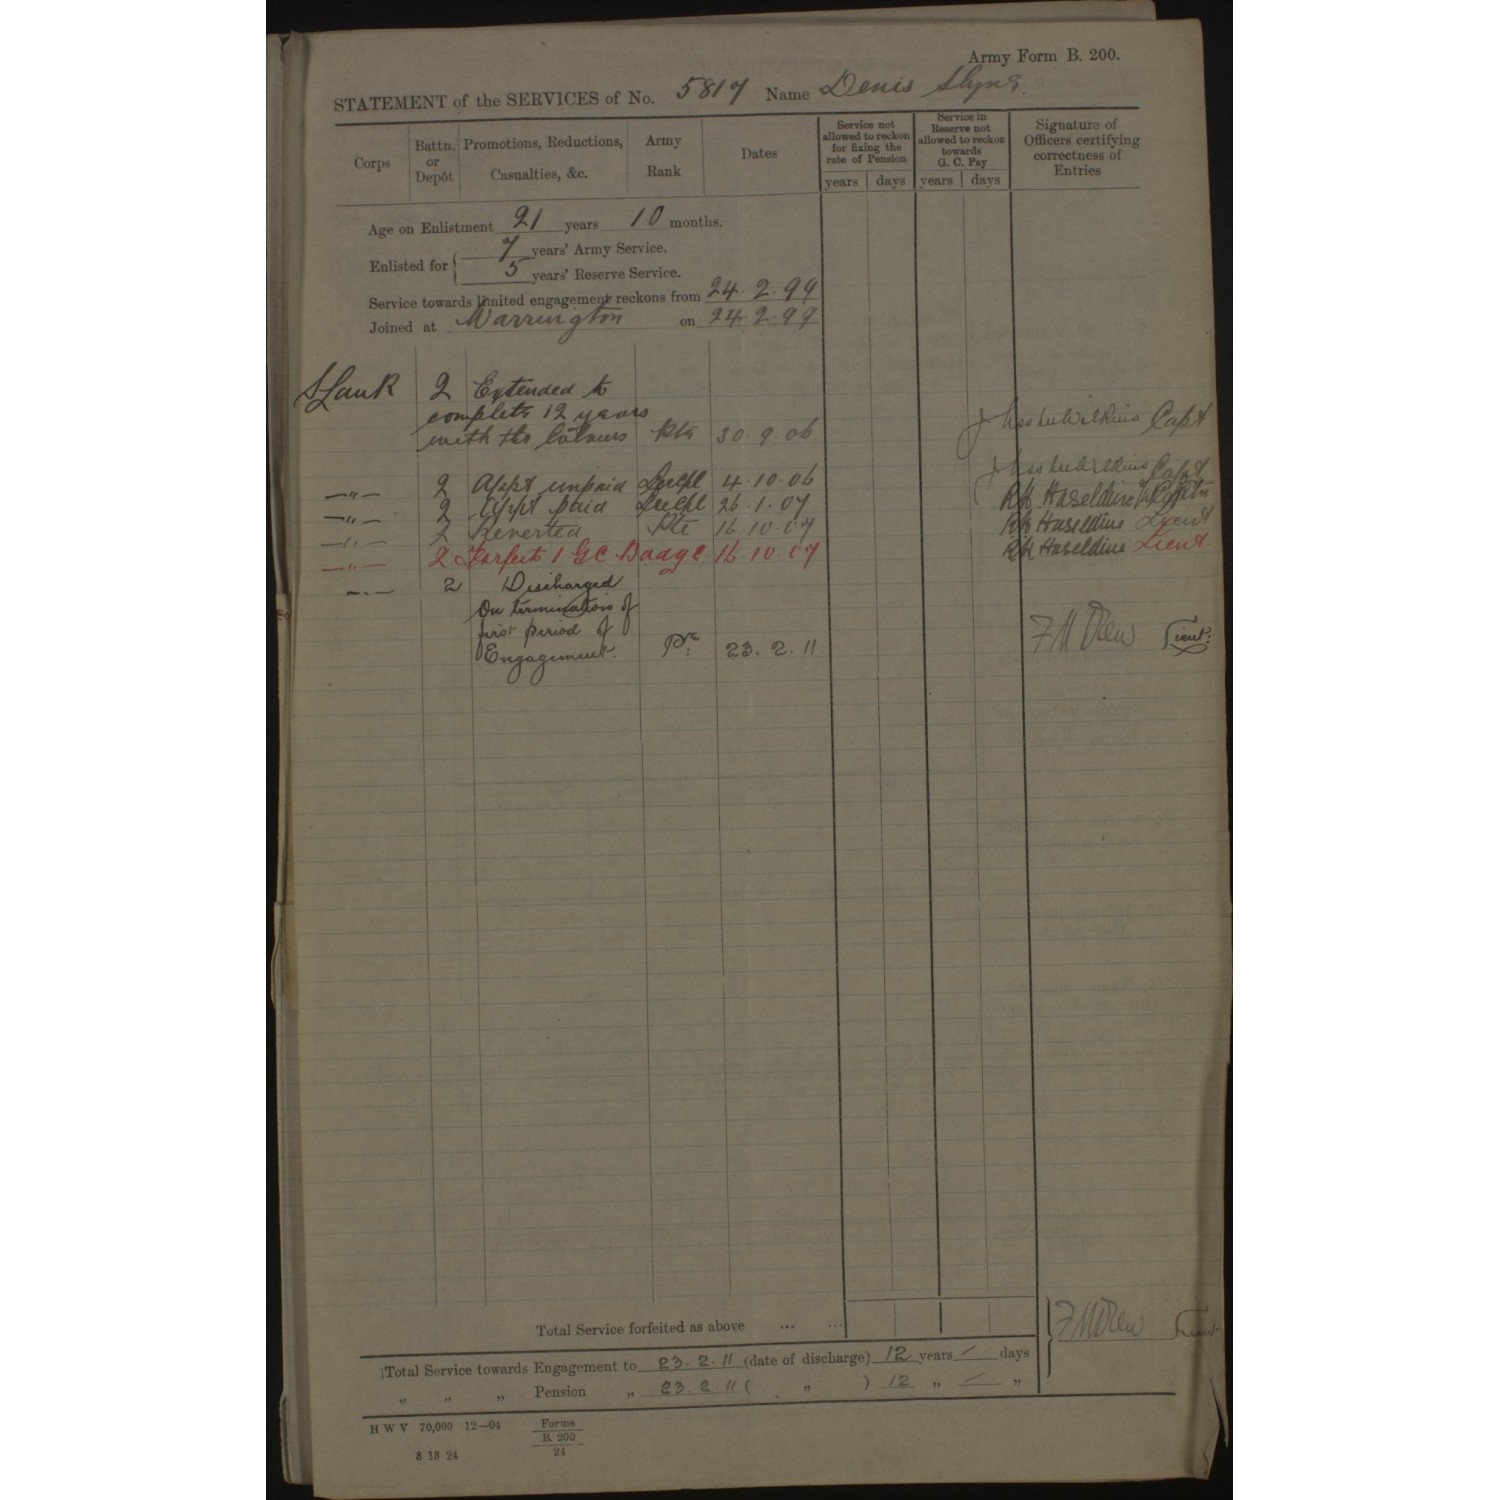 Army Form B. 200.
STATEMENT of the SERVICES of No. 5817 Name Denis Slyne
Corps
Battn. or Depôt
Promotions, Reductions, Casualties, &c.
Army Rank
Dates
Service not allowed to reckon for fixing the rate of Pension
years days
Service in Reserve not allowed to reckon towards G. C. Pay
years days
Signature of Officers certifying correctness of Entries
Age on Enlistment 21 years 10 months.
Enlisted for 7 years' Army Service.
5 years' Reserve Service.
Service towards limited engagement reckons from 24.2.99
Joined at Warrington on 24.2.99
S Lan R 2 Extended to
complete 12 years
with the Colours Pte 30.9.06 Wilkins Capt
—"— 2 Appt unpaid L/Cpl 4.10.06 Wilkins Capt
—"— 2 Appt paid L/Cpl 26.1.07 RK Haseldine
—"— 2 Reverted Pte 16.10.07 RK Haseldine Lieut
—"— 2 Forfeit 1 GC Badge 16.10.07 RK Haseldine Lieut
—"— 2 Discharged
On termination of
first period of
Engagement. Pte 23.2.11 F M Drew Lieut:
Total Service forfeited as above ... ... F M Drew Lieut
Total Service towards Engagement to 23.2.11 (date of discharge) 12 years / days
" " " Pension " 23.2.11 ( " ) 12 " / "
H W V 70,000 12—04 Forms
B. 200
24
8 13 24